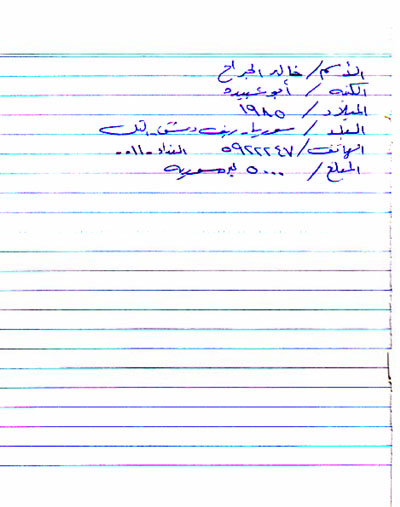 الأسم / خالد الجراح
الكنيه / أبو عبيده
الميلاد / ١٩٨٥
البلد / سوريا - ريف دمشق - التل
الهاتف / ٥٩٢٢٢٤٧ النداء - ٠١١
المبلغ / ٥٠٠٠ ليره سوريه